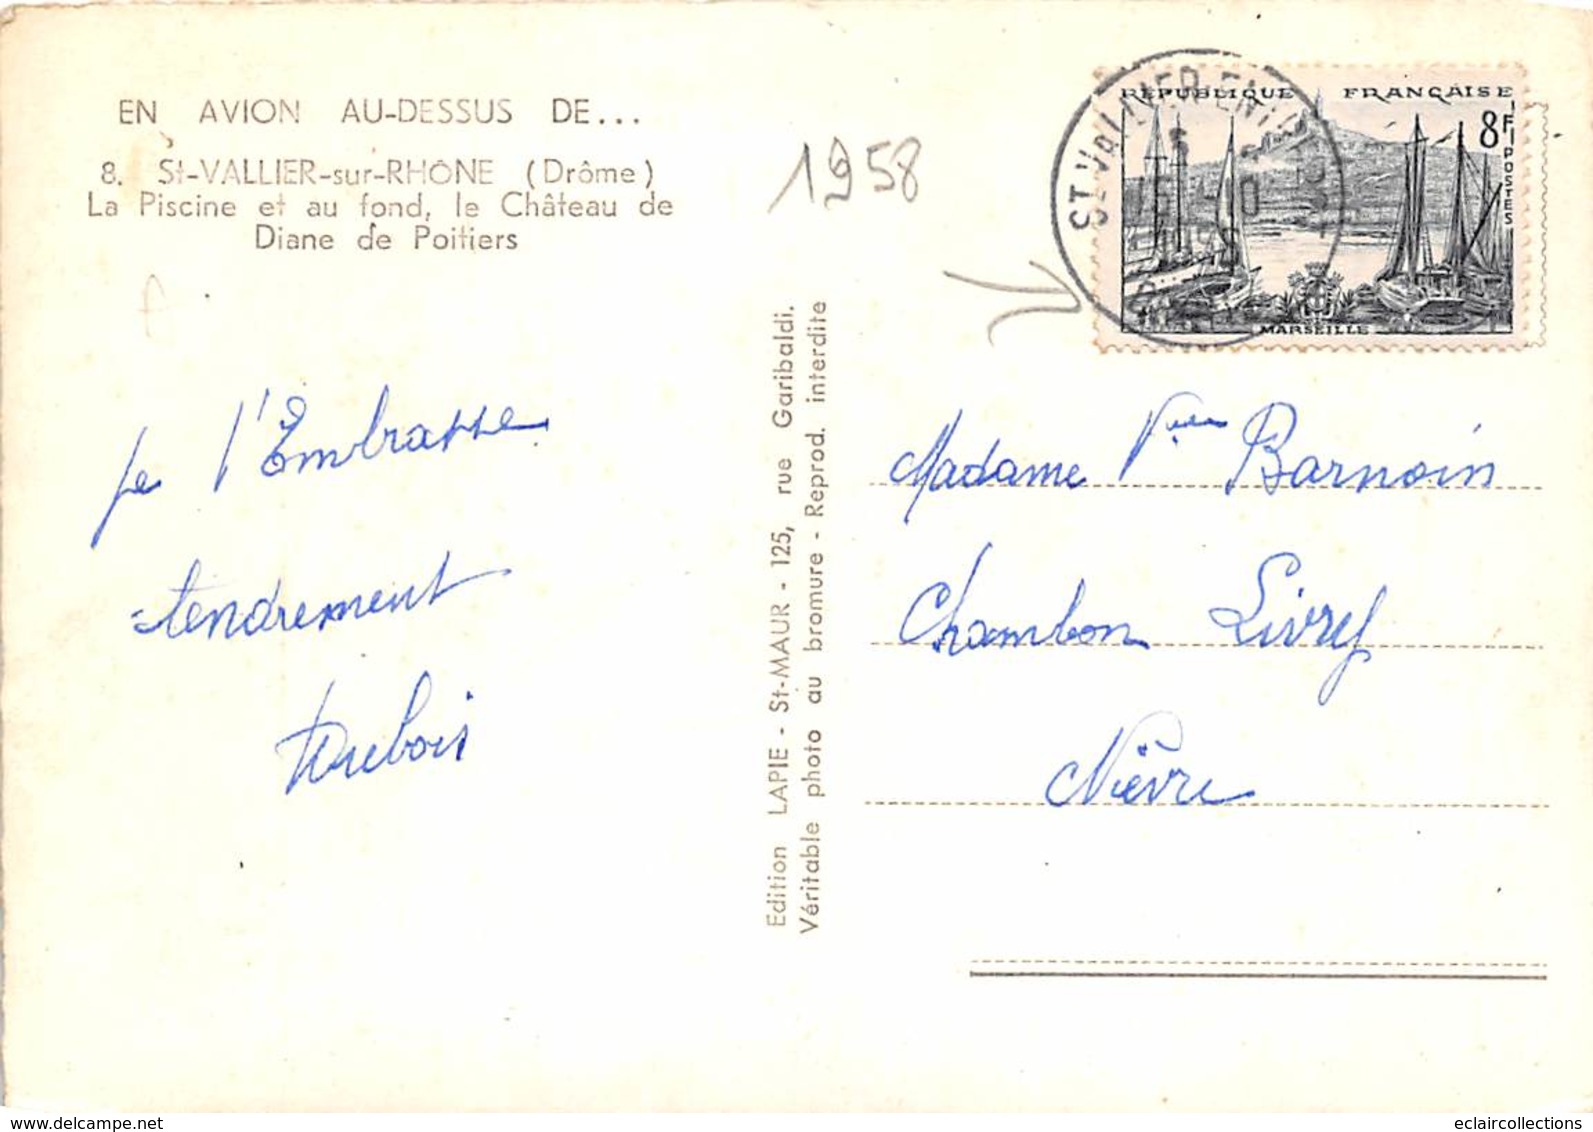 EN AVION AU-DESSUS DE...
8. St-VALLIER-sur-RHÔNE (Drôme)
La Piscine et au fond, le Château de
Diane de Poitiers
1958
je l'Embrasse
tendrement
Edition LAPIE - St-MAUR - 125, rue Garibaldi.
Véritable photo au bromure - Reprod. interdite
RÉPUBLIQUE FRANÇAISE
8F
POSTES
MARSEILLE
ST VALLIER
Madame Vve Barnoin
Chambon Livry
Nièvre
eclaircollections